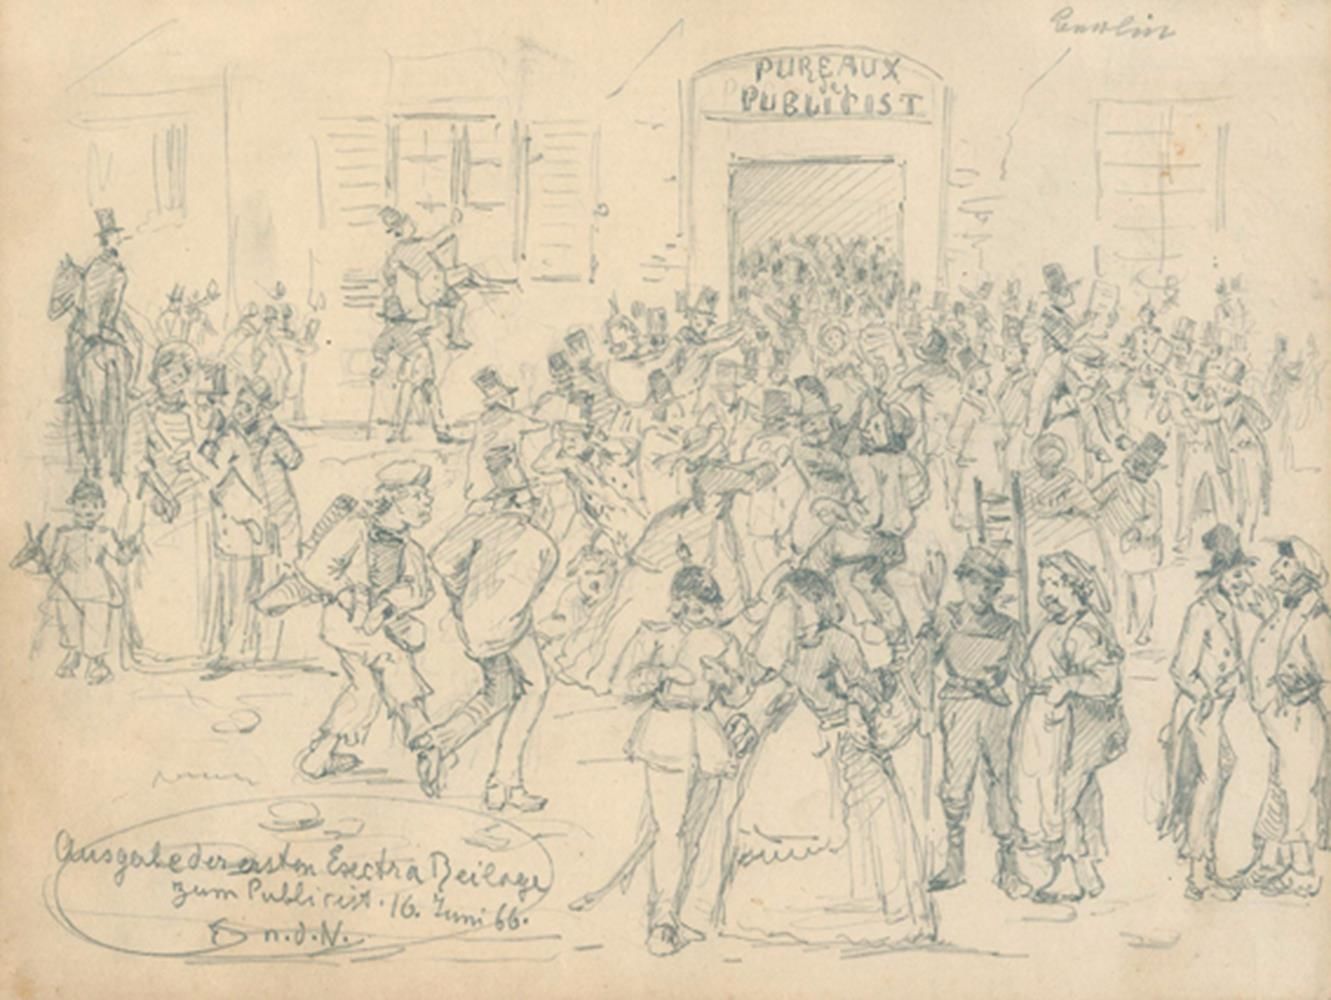 Berlin
PUREAUX
des
PUBLICIST
Ausgabe der ersten Exectra Beilage
zum Publicist. 16. Juni 66.
n.d.N.